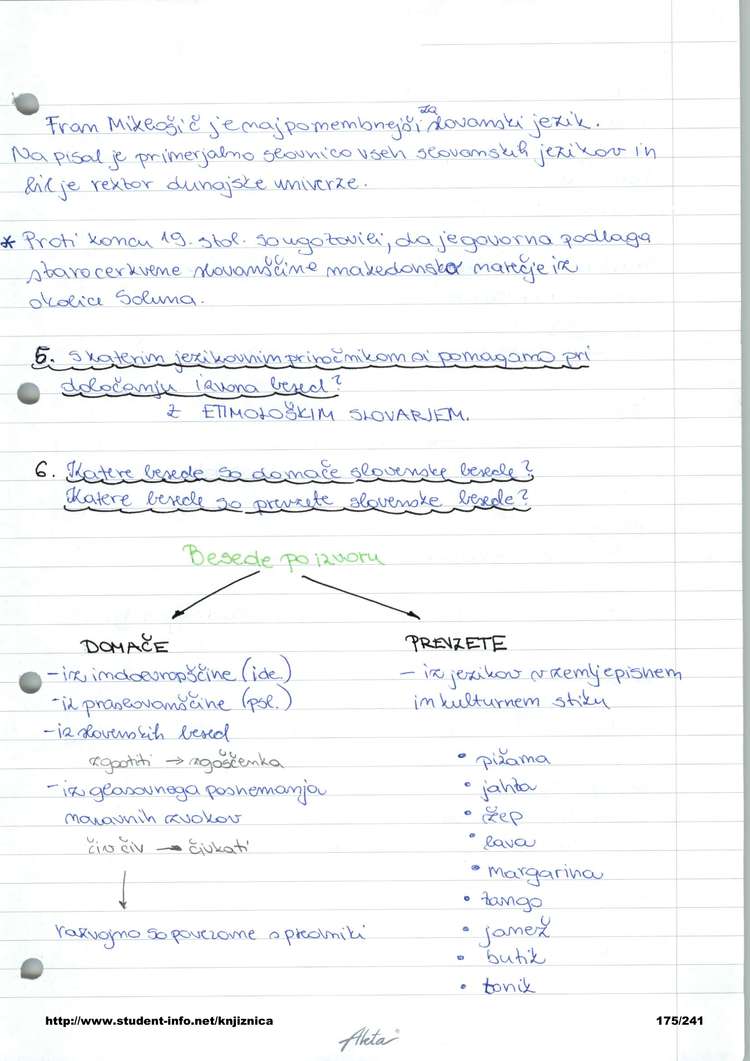 za
Fran Miklošič je najpomembnejši slovanski jezik.
Napisal je primerjalno slovnico vseh slovanskih jezikov in
bil je rektor dunajske univerze.
* Proti koncu 19. stol. so ugotovili, da je govorna podlaga
starocerkvene slovanščine makedonsko narečje iz
okolice Soluna.
5. S katerim jezikovnim priročnikom si pomagamo pri
določanju izvora besed?
Z ETIMOLOŠKIM SLOVARJEM.
6. Katere besede so domače slovenske besede?
Katere besede so prevzete slovenske besede?
Besede po izvoru
DOMAČE
- iz indoevropščine (ide.)
- iz praslovanščine (psl.)
- iz slovenskih besed
zgostiti → zgoščenka
- iz glasovnega posnemanja
naravnih zvokov
čiv čiv → čivkati
razvojno so povezane s predniki
PREVZETE
- iz jezikov v zemljepisnem
in kulturnem stiku
• pižama
• jahta
• žep
• lava
• margarina
• tango
• janež
• butik
• tonik
http://www.student-info.net/knjiznica
175/241
Akta